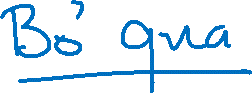 Bỏ qua